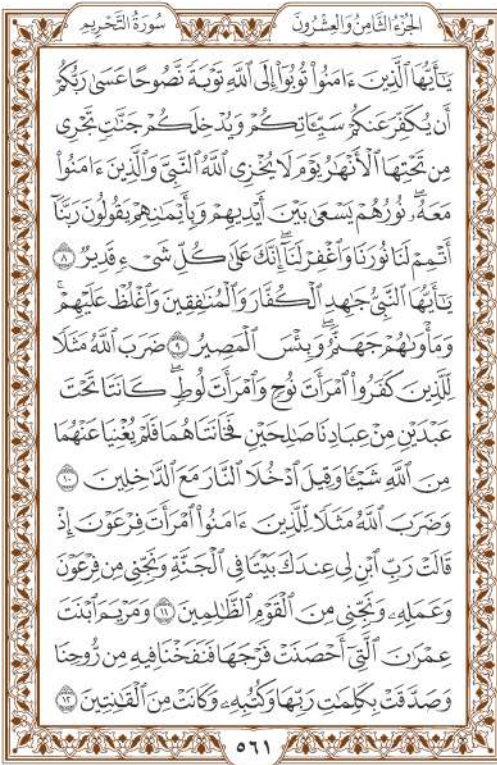 الجُزْءُ الثَّامِنُ وَالعِشْرُونَ
سُورَةُ التَّحْرِيمِ
يَـٰٓأَيُّهَا ٱلَّذِينَ ءَامَنُوا۟ تُوبُوٓا۟ إِلَى ٱللَّهِ تَوْبَةً نَّصُوحًا عَسَىٰ رَبُّكُمْ
أَن يُكَفِّرَ عَنكُمْ سَيِّـَٔاتِكُمْ وَيُدْخِلَكُمْ جَنَّـٰتٍ تَجْرِى
مِن تَحْتِهَا ٱلْأَنْهَـٰرُ يَوْمَ لَا يُخْزِى ٱللَّهُ ٱلنَّبِىَّ وَٱلَّذِينَ ءَامَنُوا۟
مَعَهُۥ ۖ نُورُهُمْ يَسْعَىٰ بَيْنَ أَيْدِيهِمْ وَبِأَيْمَـٰنِهِمْ يَقُولُونَ رَبَّنَآ
أَتْمِمْ لَنَا نُورَنَا وَٱغْفِرْ لَنَآ ۖ إِنَّكَ عَلَىٰ كُلِّ شَىْءٍ قَدِيرٌ ٨
يَـٰٓأَيُّهَا ٱلنَّبِىُّ جَـٰهِدِ ٱلْكُفَّارَ وَٱلْمُنَـٰفِقِينَ وَٱغْلُظْ عَلَيْهِمْ ۚ
وَمَأْوَىٰهُمْ جَهَنَّمُ ۖ وَبِئْسَ ٱلْمَصِيرُ ٩ ضَرَبَ ٱللَّهُ مَثَلًا
لِّلَّذِينَ كَفَرُوا۟ ٱمْرَأَتَ نُوحٍ وَٱمْرَأَتَ لُوطٍ ۖ كَانَتَا تَحْتَ
عَبْدَيْنِ مِنْ عِبَادِنَا صَـٰلِحَيْنِ فَخَانَتَاهُمَا فَلَمْ يُغْنِيَا عَنْهُمَا
مِنَ ٱللَّهِ شَيْـًٔا وَقِيلَ ٱدْخُلَا ٱلنَّارَ مَعَ ٱلدَّٰخِلِينَ ١٠
وَضَرَبَ ٱللَّهُ مَثَلًا لِّلَّذِينَ ءَامَنُوا۟ ٱمْرَأَتَ فِرْعَوْنَ إِذْ
قَالَتْ رَبِّ ٱبْنِ لِى عِندَكَ بَيْتًا فِى ٱلْجَنَّةِ وَنَجِّنِى مِن فِرْعَوْنَ
وَعَمَلِهِۦ وَنَجِّنِى مِنَ ٱلْقَوْمِ ٱلظَّـٰلِمِينَ ١١ وَمَرْيَمَ ٱبْنَتَ
عِمْرَٰنَ ٱلَّتِىٓ أَحْصَنَتْ فَرْجَهَا فَنَفَخْنَا فِيهِ مِن رُّوحِنَا
وَصَدَّقَتْ بِكَلِمَـٰتِ رَبِّهَا وَكُتُبِهِۦ وَكَانَتْ مِنَ ٱلْقَـٰنِتِينَ ١٢
٥٦١